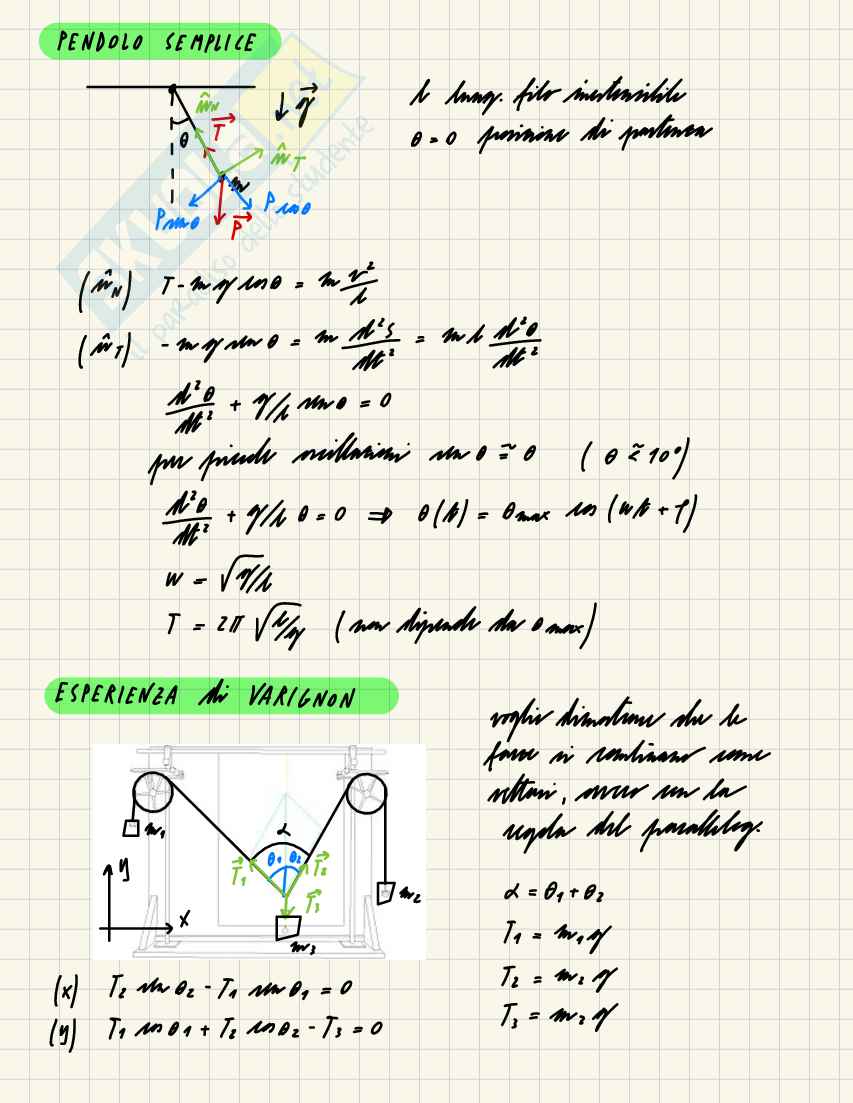 PENDOLO SEMPLICE
l lung. filo inestensibile
θ = 0 posizione di partenza
n̂_N
↓ g⃗
θ
T⃗
n̂_T
m
P sen θ
P cos θ
P⃗
(n̂_N) T - m g cos θ = m v²/l
(n̂_T) - m g sen θ = m d²s/dt² = m l d²θ/dt²
d²θ/dt² + g/l sen θ = 0
per piccole oscillazioni sen θ ≃ θ ( θ ≲ 10°)
d²θ/dt² + g/l θ = 0 ⇒ θ(t) = θ_max cos (wt + φ)
w = √g/l
T = 2π √l/g (non dipende da θ max)
ESPERIENZA di VARIGNON
voglio dimostrare che le
forze si combinano come
vettori, ovvero con la
regola del parallelog.
m₁
α
θ₁ θ₂
T⃗₁
T⃗₂
T⃗₃
y
x
m₂
m₃
α = θ₁ + θ₂
T₁ = m₁ g
T₂ = m₂ g
T₃ = m₃ g
(x) T₂ sen θ₂ - T₁ sen θ₁ = 0
(y) T₁ cos θ₁ + T₂ cos θ₂ - T₃ = 0